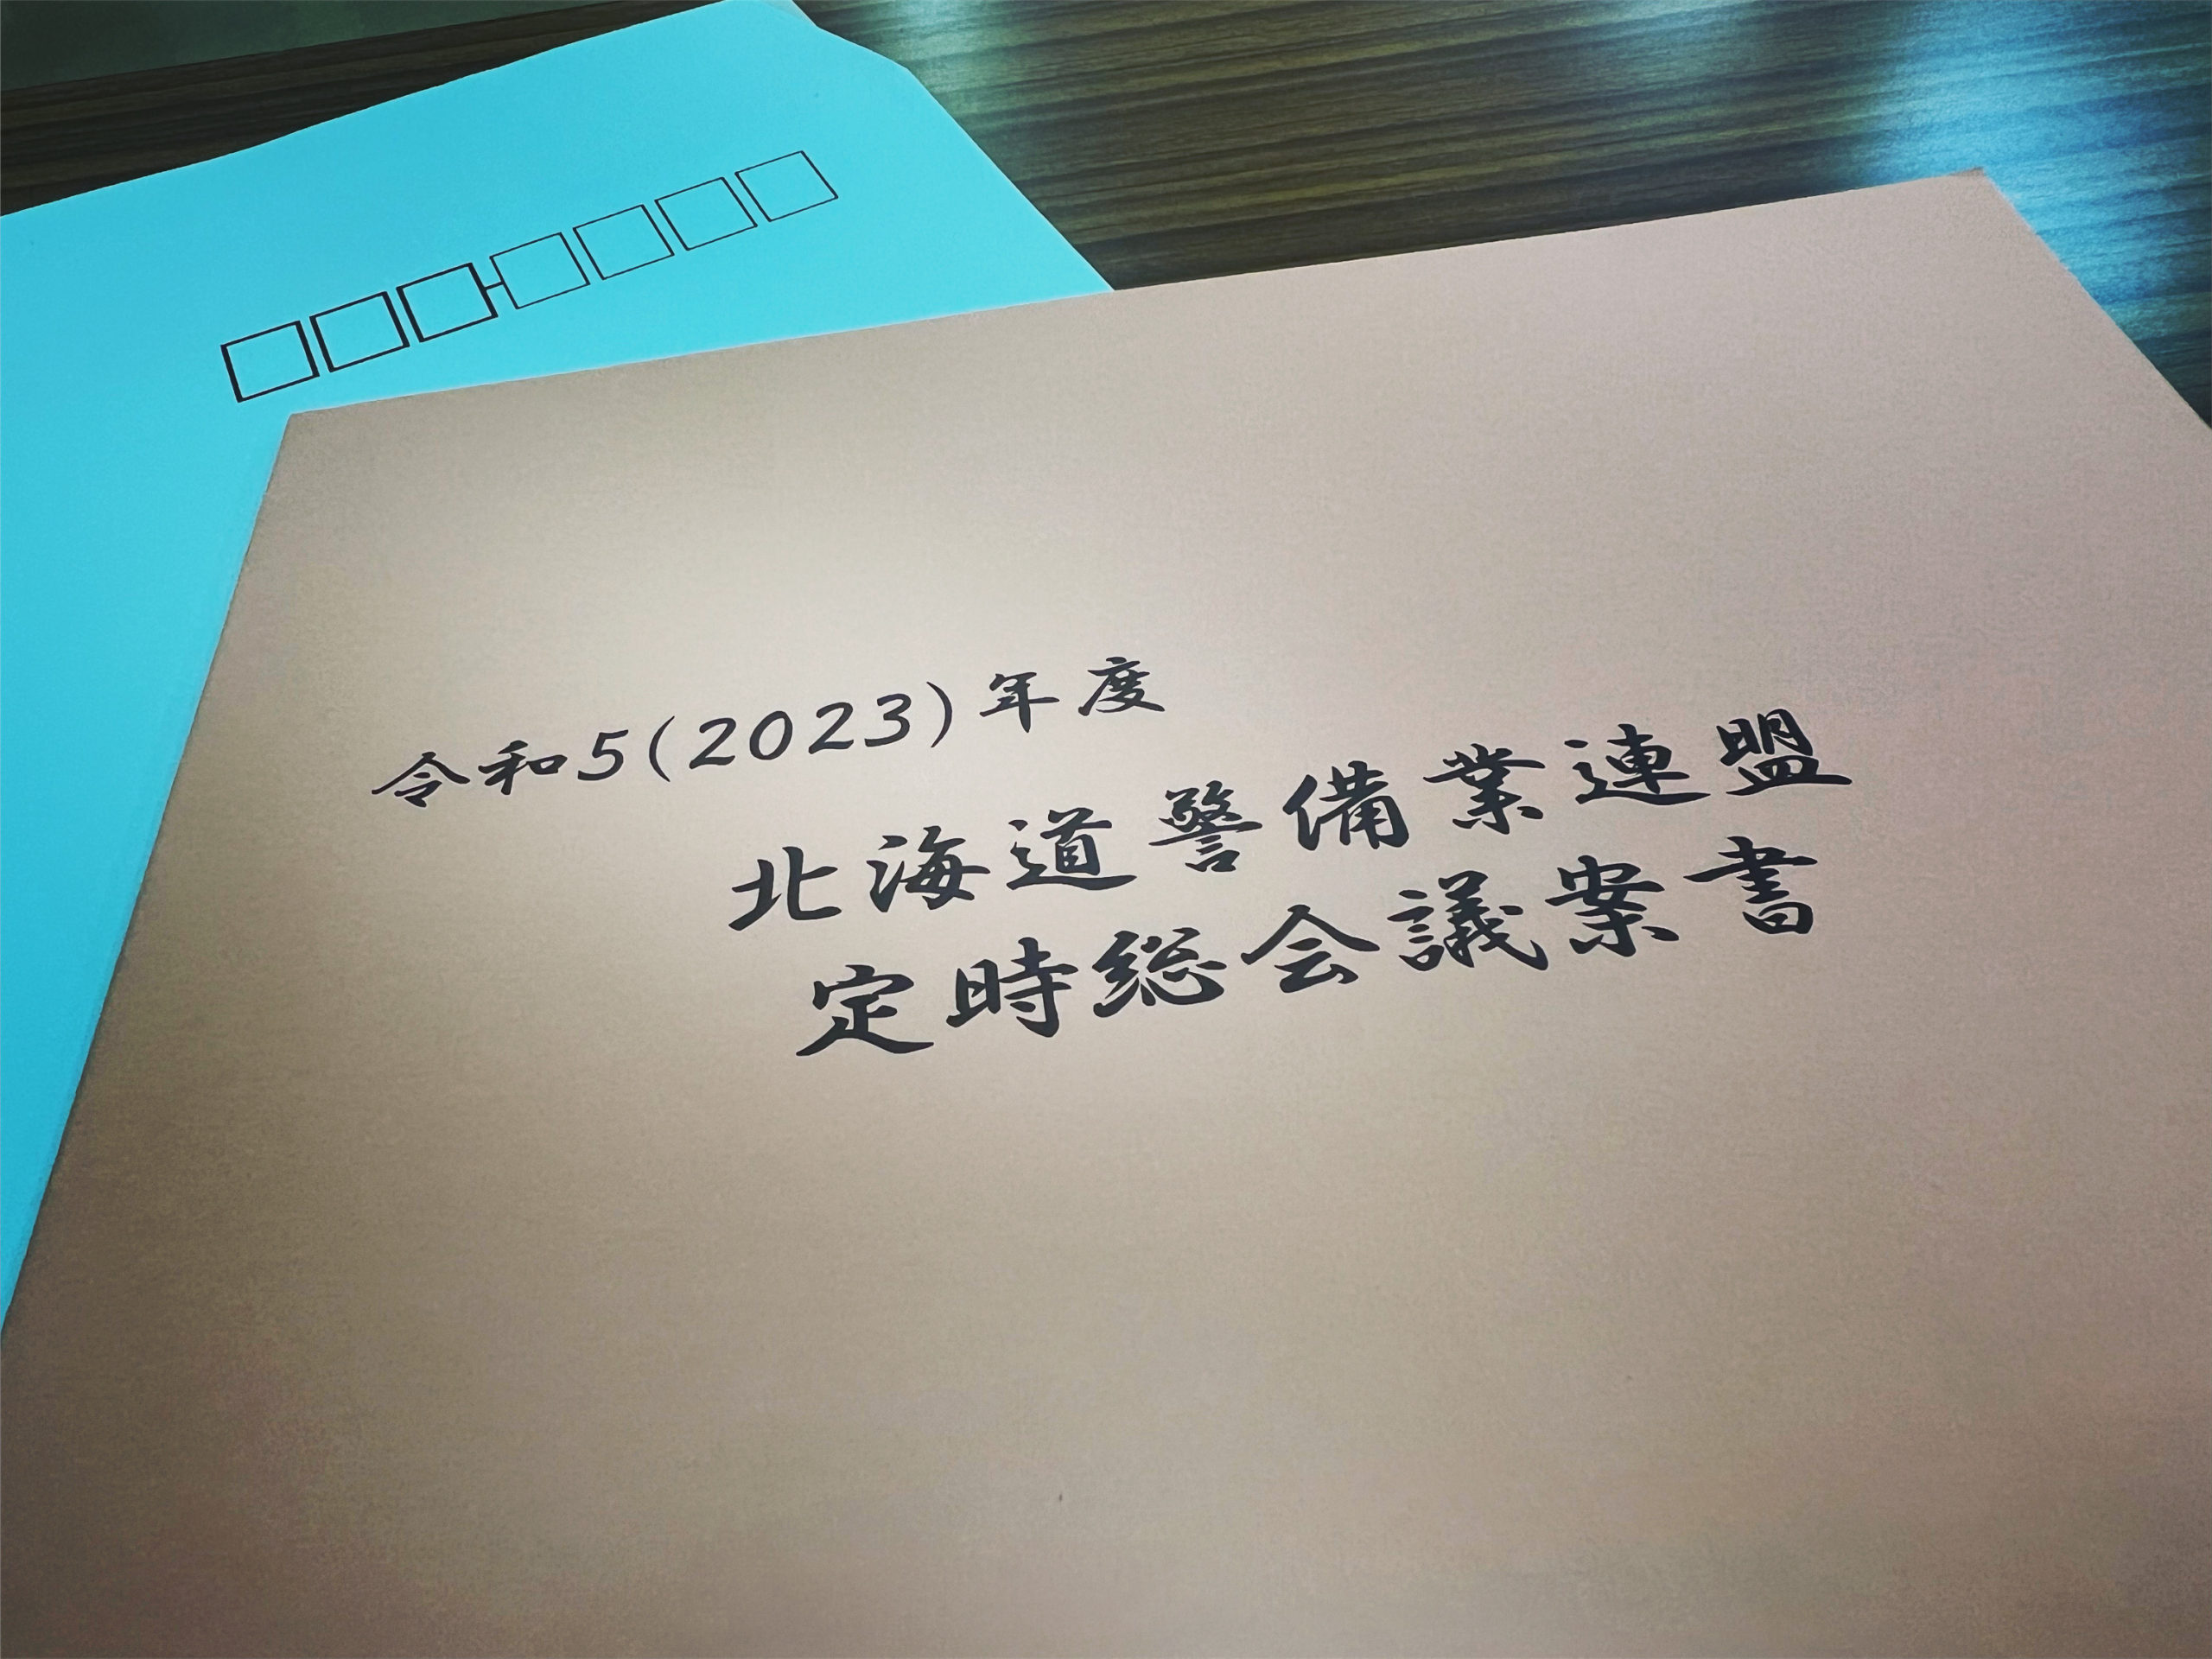 令和5(2023)年度
北海道警備業連盟
定時総会議案書